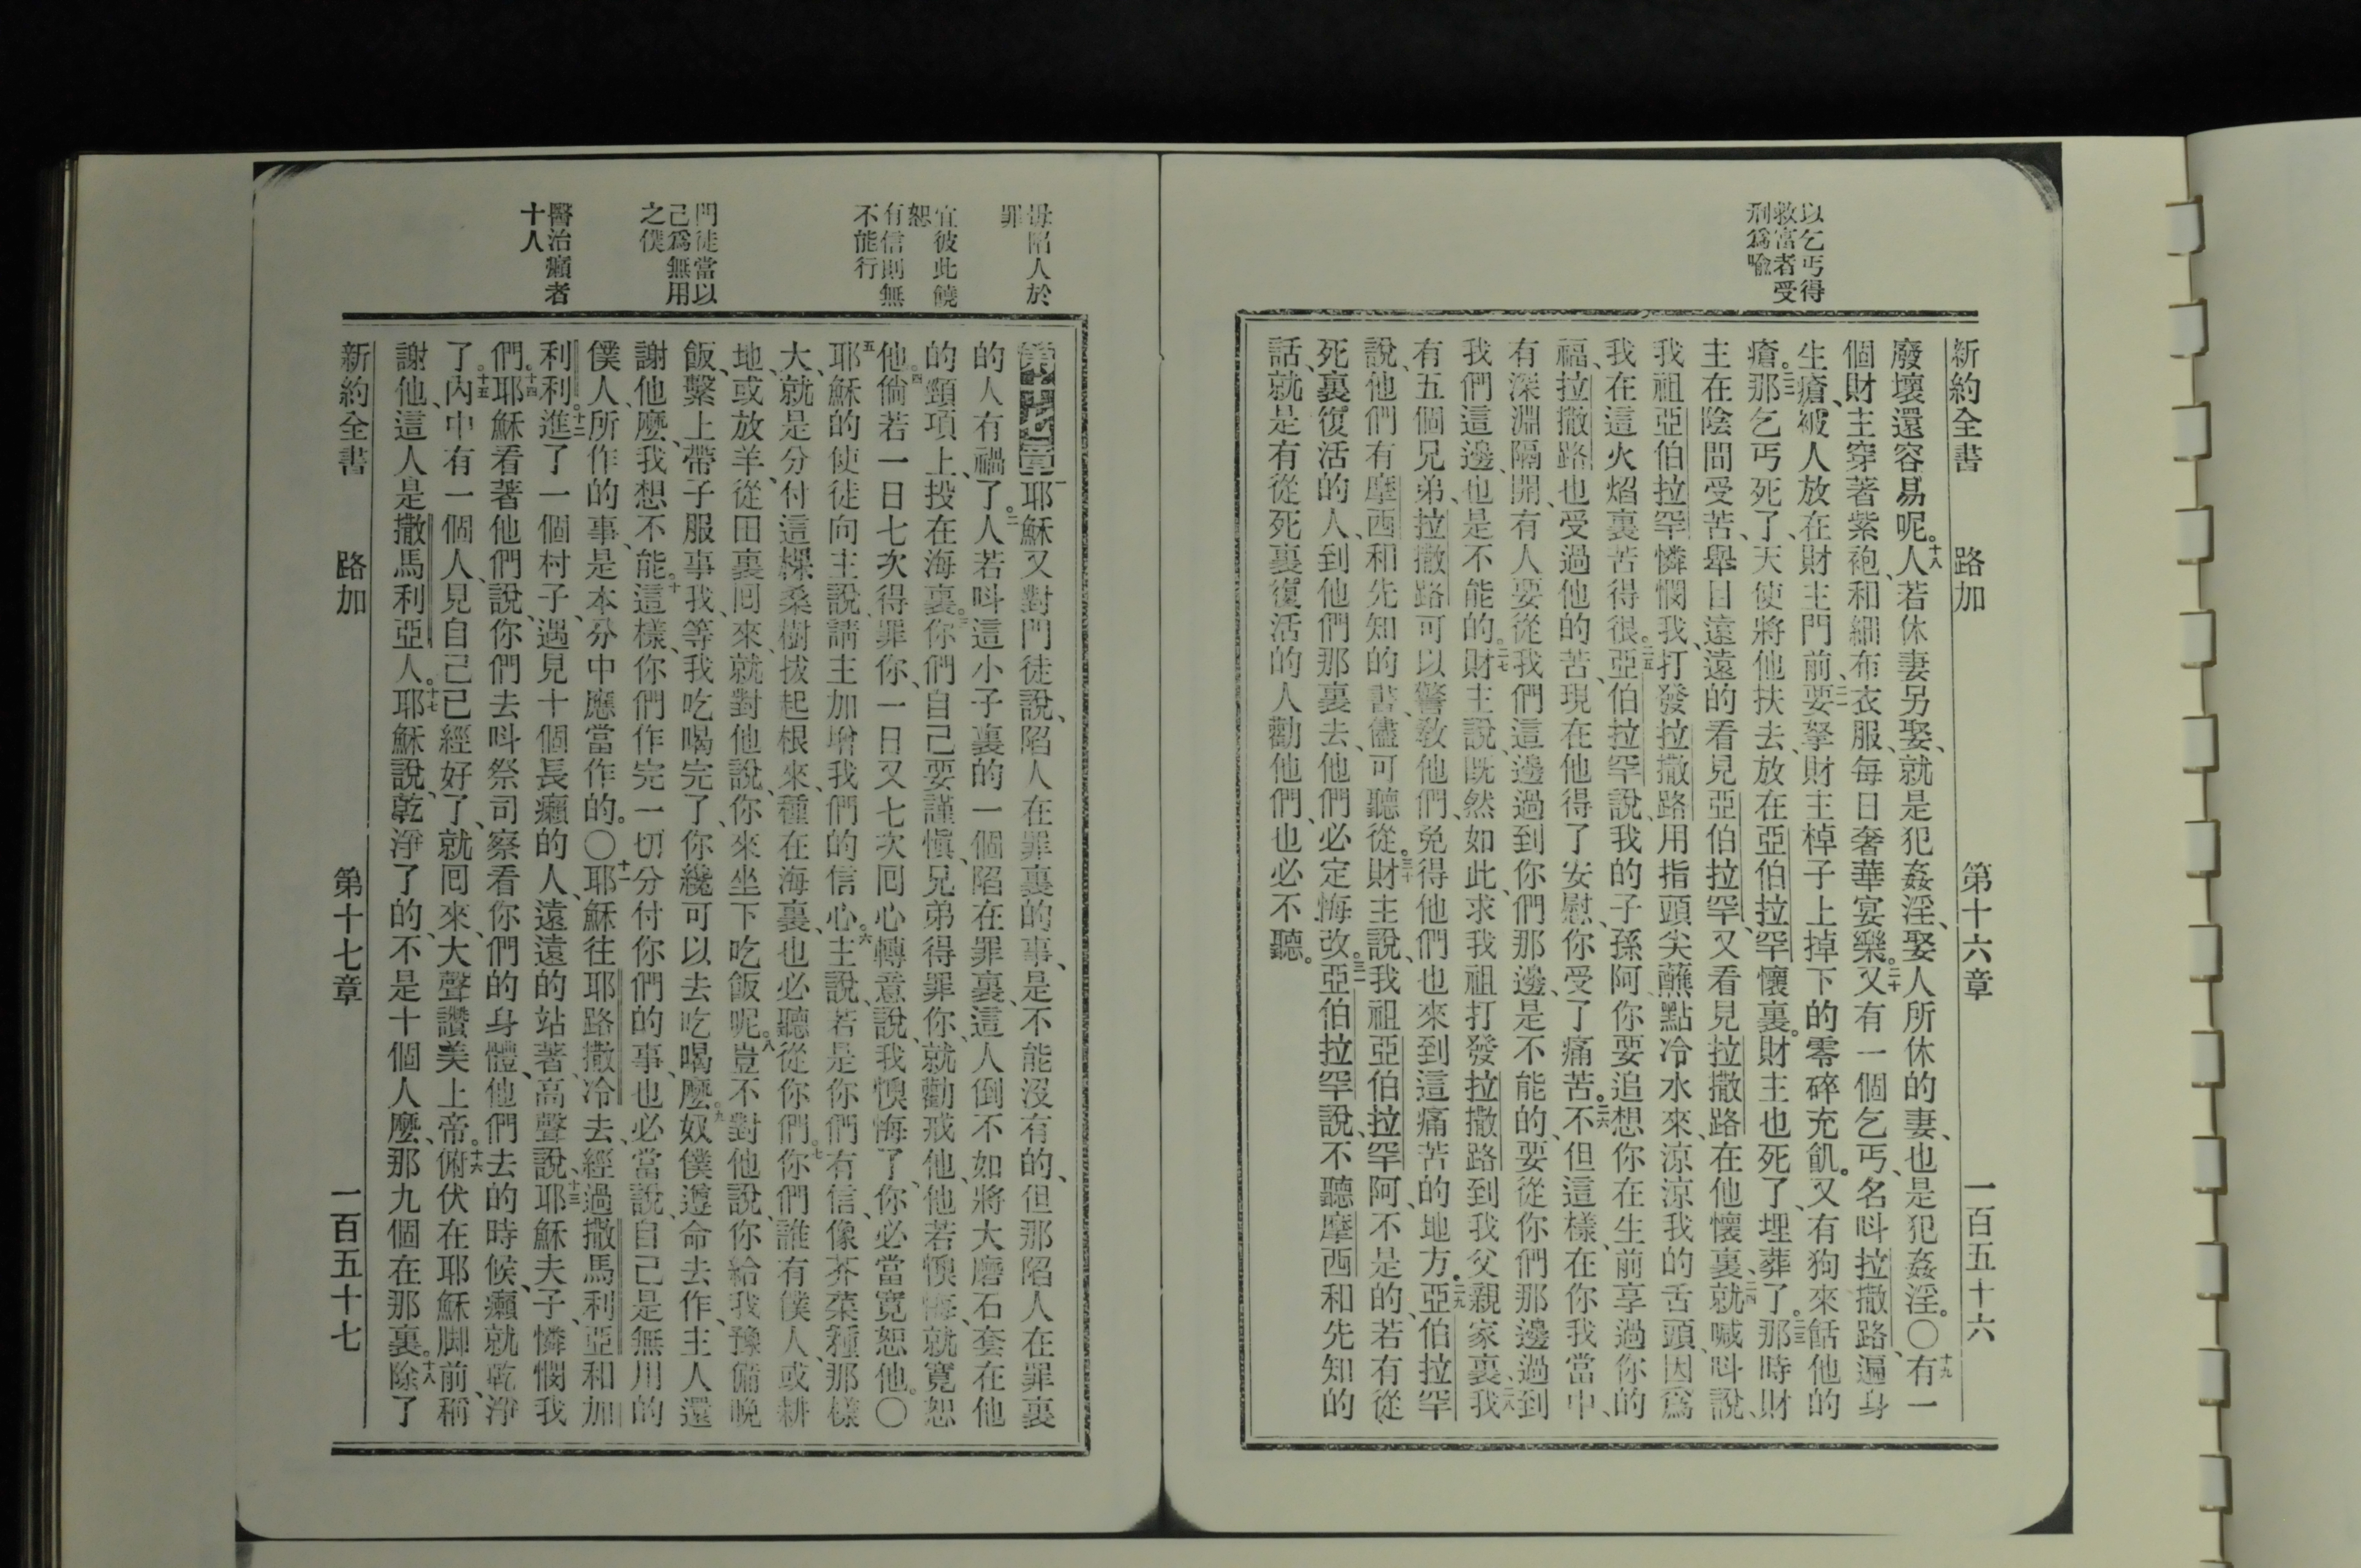 以乞丐得
救富者受
刑爲喩
新約全書 路加 第十六章 一百五十六
廢壞還容易呢。十八人若休妻另娶、就是犯姦淫、娶人所休的妻、也是犯姦淫。〇十九有一
個財主穿著紫袍、和細布衣服、每日奢華宴樂。二十又有一個乞丐、名呌拉撒路、遍身
生瘡、被人放在財主門前、二一要拏財主棹子上掉下的零碎充飢。又有狗來餂他的
瘡。二二那乞丐死了、天使將他扶去、放在亞伯拉罕懷裏。財主也死了、埋葬了。二三那時財
主在陰間受苦、舉目遠遠的看見亞伯拉罕、又看見拉撒路在他懷裏、二四就喊呌說、
我祖亞伯拉罕憐憫我、打發拉撒路用指頭尖蘸點冷水來、涼涼我的舌頭、因爲
我在這火焰裏苦得很。二五亞伯拉罕說、我的子孫阿你要追想你在生前享過你的
福、拉撒路也受過他的苦、現在他得了安慰、你受了痛苦。二六不但這樣、在你我當中、
有深淵隔開、有人要從我們這邊過到你們那邊、是不能的、要從你們那邊過到
我們這邊、也是不能的。二七財主說、旣然如此、求我祖打發拉撒路到我父親家裏、二八我
有五個兄弟、拉撒路可以警敎他們、免得他們也來到這痛苦的地方。二九亞伯拉罕
說、他們有摩西和先知的書、儘可聽從。三十財主說、我祖亞伯拉罕阿、不是的、若有從
死裏復活的人、到他們那裏去、他們必定悔改。三一亞伯拉罕說、不聽摩西和先知的
話、就是有從死裏復活的人勸他們、也必不聽。
毋陷人於
罪
宜彼此饒
恕
有信則無
不能行
門徒當以
己爲無用
之僕
醫治癩者
十人
第十七章 一耶穌又對門徒說、陷人在罪裏的事、是不能沒有的、但那陷人在罪裏
的人有禍了。二人若呌這小子裏的一個陷在罪裏、這人倒不如將大磨石套在他
的頸項上、投在海裏。三你們自己要謹愼、兄弟得罪你、就勸戒他、他若懊悔、就寬恕
他。四倘若一日七次得罪你、一日又七次囘心轉意說、我懊悔了、你必當寬恕他。〇
五耶穌的使徒向主說、請主加增我們的信心。六主說、若是你們有信、像芥菜種那樣
大、就是分付這棵桑樹拔起根來、種在海裏、也必聽從你們。七你們誰有僕人、或耕
地、或放羊、從田裏囘來、就對他說、你來坐下吃飯呢。八豈不對他說、你給我豫備晚
飯、繫上帶子服事我、等我吃喝完了、你纔可以去吃喝麽。九奴僕遵命去作、主人還
謝他麽、我想不能。十這樣、你們作完一切分付你們的事、也必當說、自己是無用的
僕人、所作的事、是本分中應當作的。〇十一耶穌往耶路撒冷去、經過撒馬利亞和加
利利。十二進了一個村子、遇見十個長癩的人、遠遠的站著、高聲說、十三耶穌夫子、憐憫我
們。十四耶穌看著他們說、你們去呌祭司察看你們的身體、他們去的時候、癩就乾淨
了。十五內中有一個人、見自己已經好了、就囘來、大聲讚美上帝。十六俯伏在耶穌脚前、稱
謝他、這人是撒馬利亞人。十七耶穌說、乾淨了的、不是十個人麽、那九個在那裏。十八除了
新約全書 路加 第十七章 一百五十七